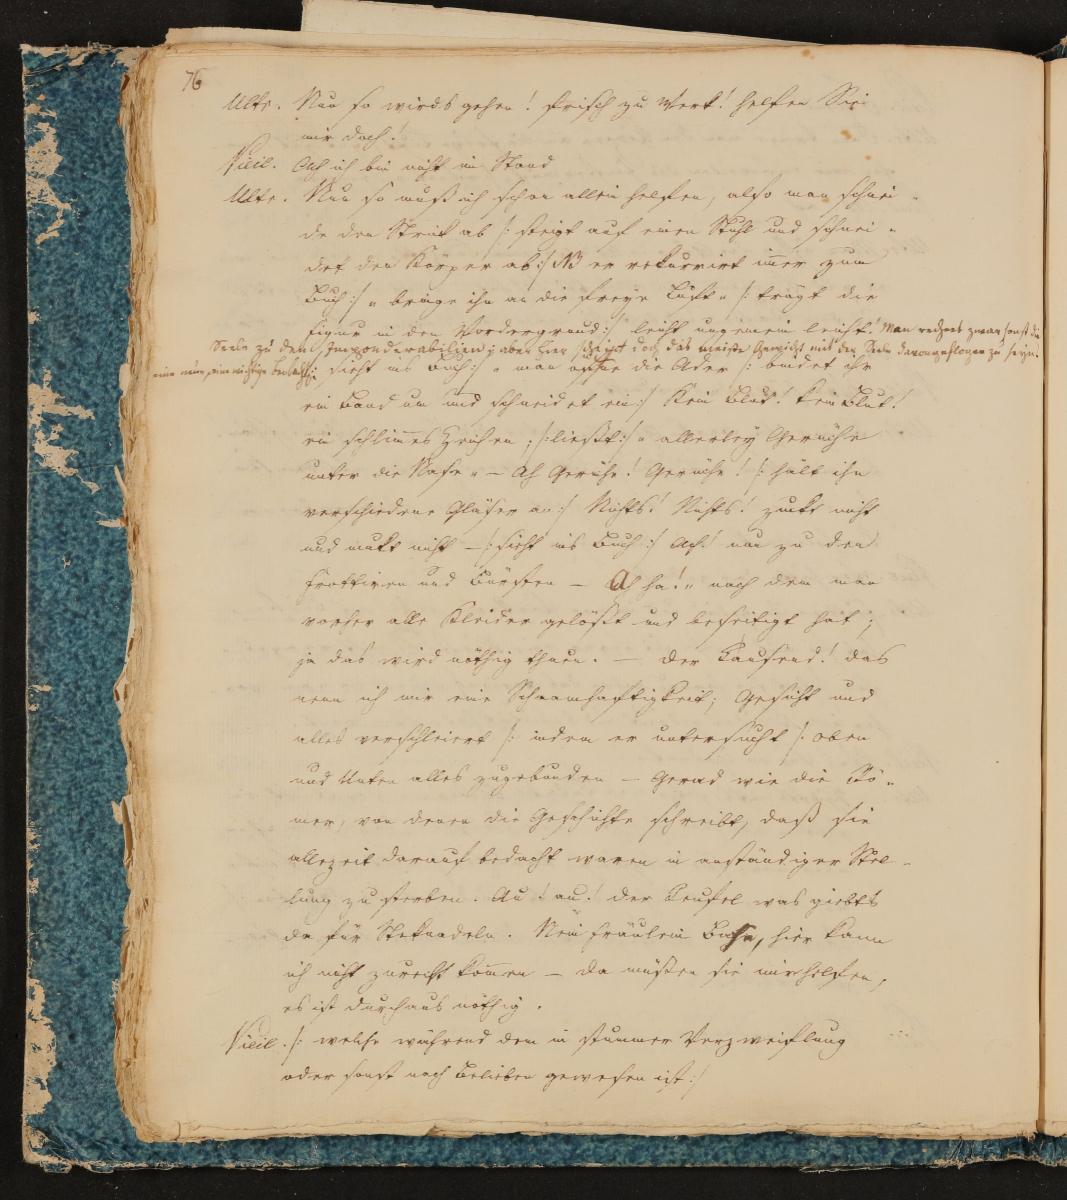 76
Ulfr. Nun so wirds gehen! frisch zu Werk! helfen Sie
mir doch!
Vicil. Ach ich bin nicht im Stand
Ulfr. Nun so muß ich schon allein helfen, also man schnei-
de den Strik ab /: steigt auf einen Stuhl und schnei-
det den Körper ab :/ NB er rekurrirt immer zum
Buch :/ „ bringe ihn an die freye Luft „ /: trägt die
Figur in den Vordergrund :/ leicht ungemein leicht! Man rechnet zwar sonst die
Seele zu den Imponderabilien; aber hier scheint doch das meiste Gewicht mit der Seele davongeflogen zu seyn.
eine neue, eine wichtige
/: sieht ins Buch :/ „ man öffne die Ader /: bindet ihr
ein Band um und schneidet ein :/ Kein Blut! kein Blut!
ein schlimmes Zeichen; /: ließt :/ „ allerley Gerüche
unter die Nase „ – Ah Gerüche! Gerüche! /: hält ihr
verschiedene Gläser an :/ Nichts! Nichts! zukt nicht
und mukt nicht – /: sieht ins Buch :/ Ach! nun zu den
Frottiren und Bürsten – Ah ha! „ nach dem man
vorher alle Kleider gelößt und beseitigt hat;
ja das wird nöthig thuen. – der Tausend! das
nenn ich mir eine Schaamhaftigkeit; Gesicht und
alles verschleiert /: indem er untersucht /: oben
und Unten alles zugebunden – Gerad wie die Rö-
mer, von denen die Geschichte schreibt, daß sie
allezeit darauf bedacht waren in anständiger Stel-
lung zu sterben. Au! au! der Teufel was giebts
da für Steknadeln. Nein Fräulein Base, hier kann
ich nicht zurecht kommen – da müßen sie mir helfen,
es ist durchaus nöthig.
Vicil. /: welche während dem in stummer Verzweiflung
oder sonst nach Belieben gewesen ist :/